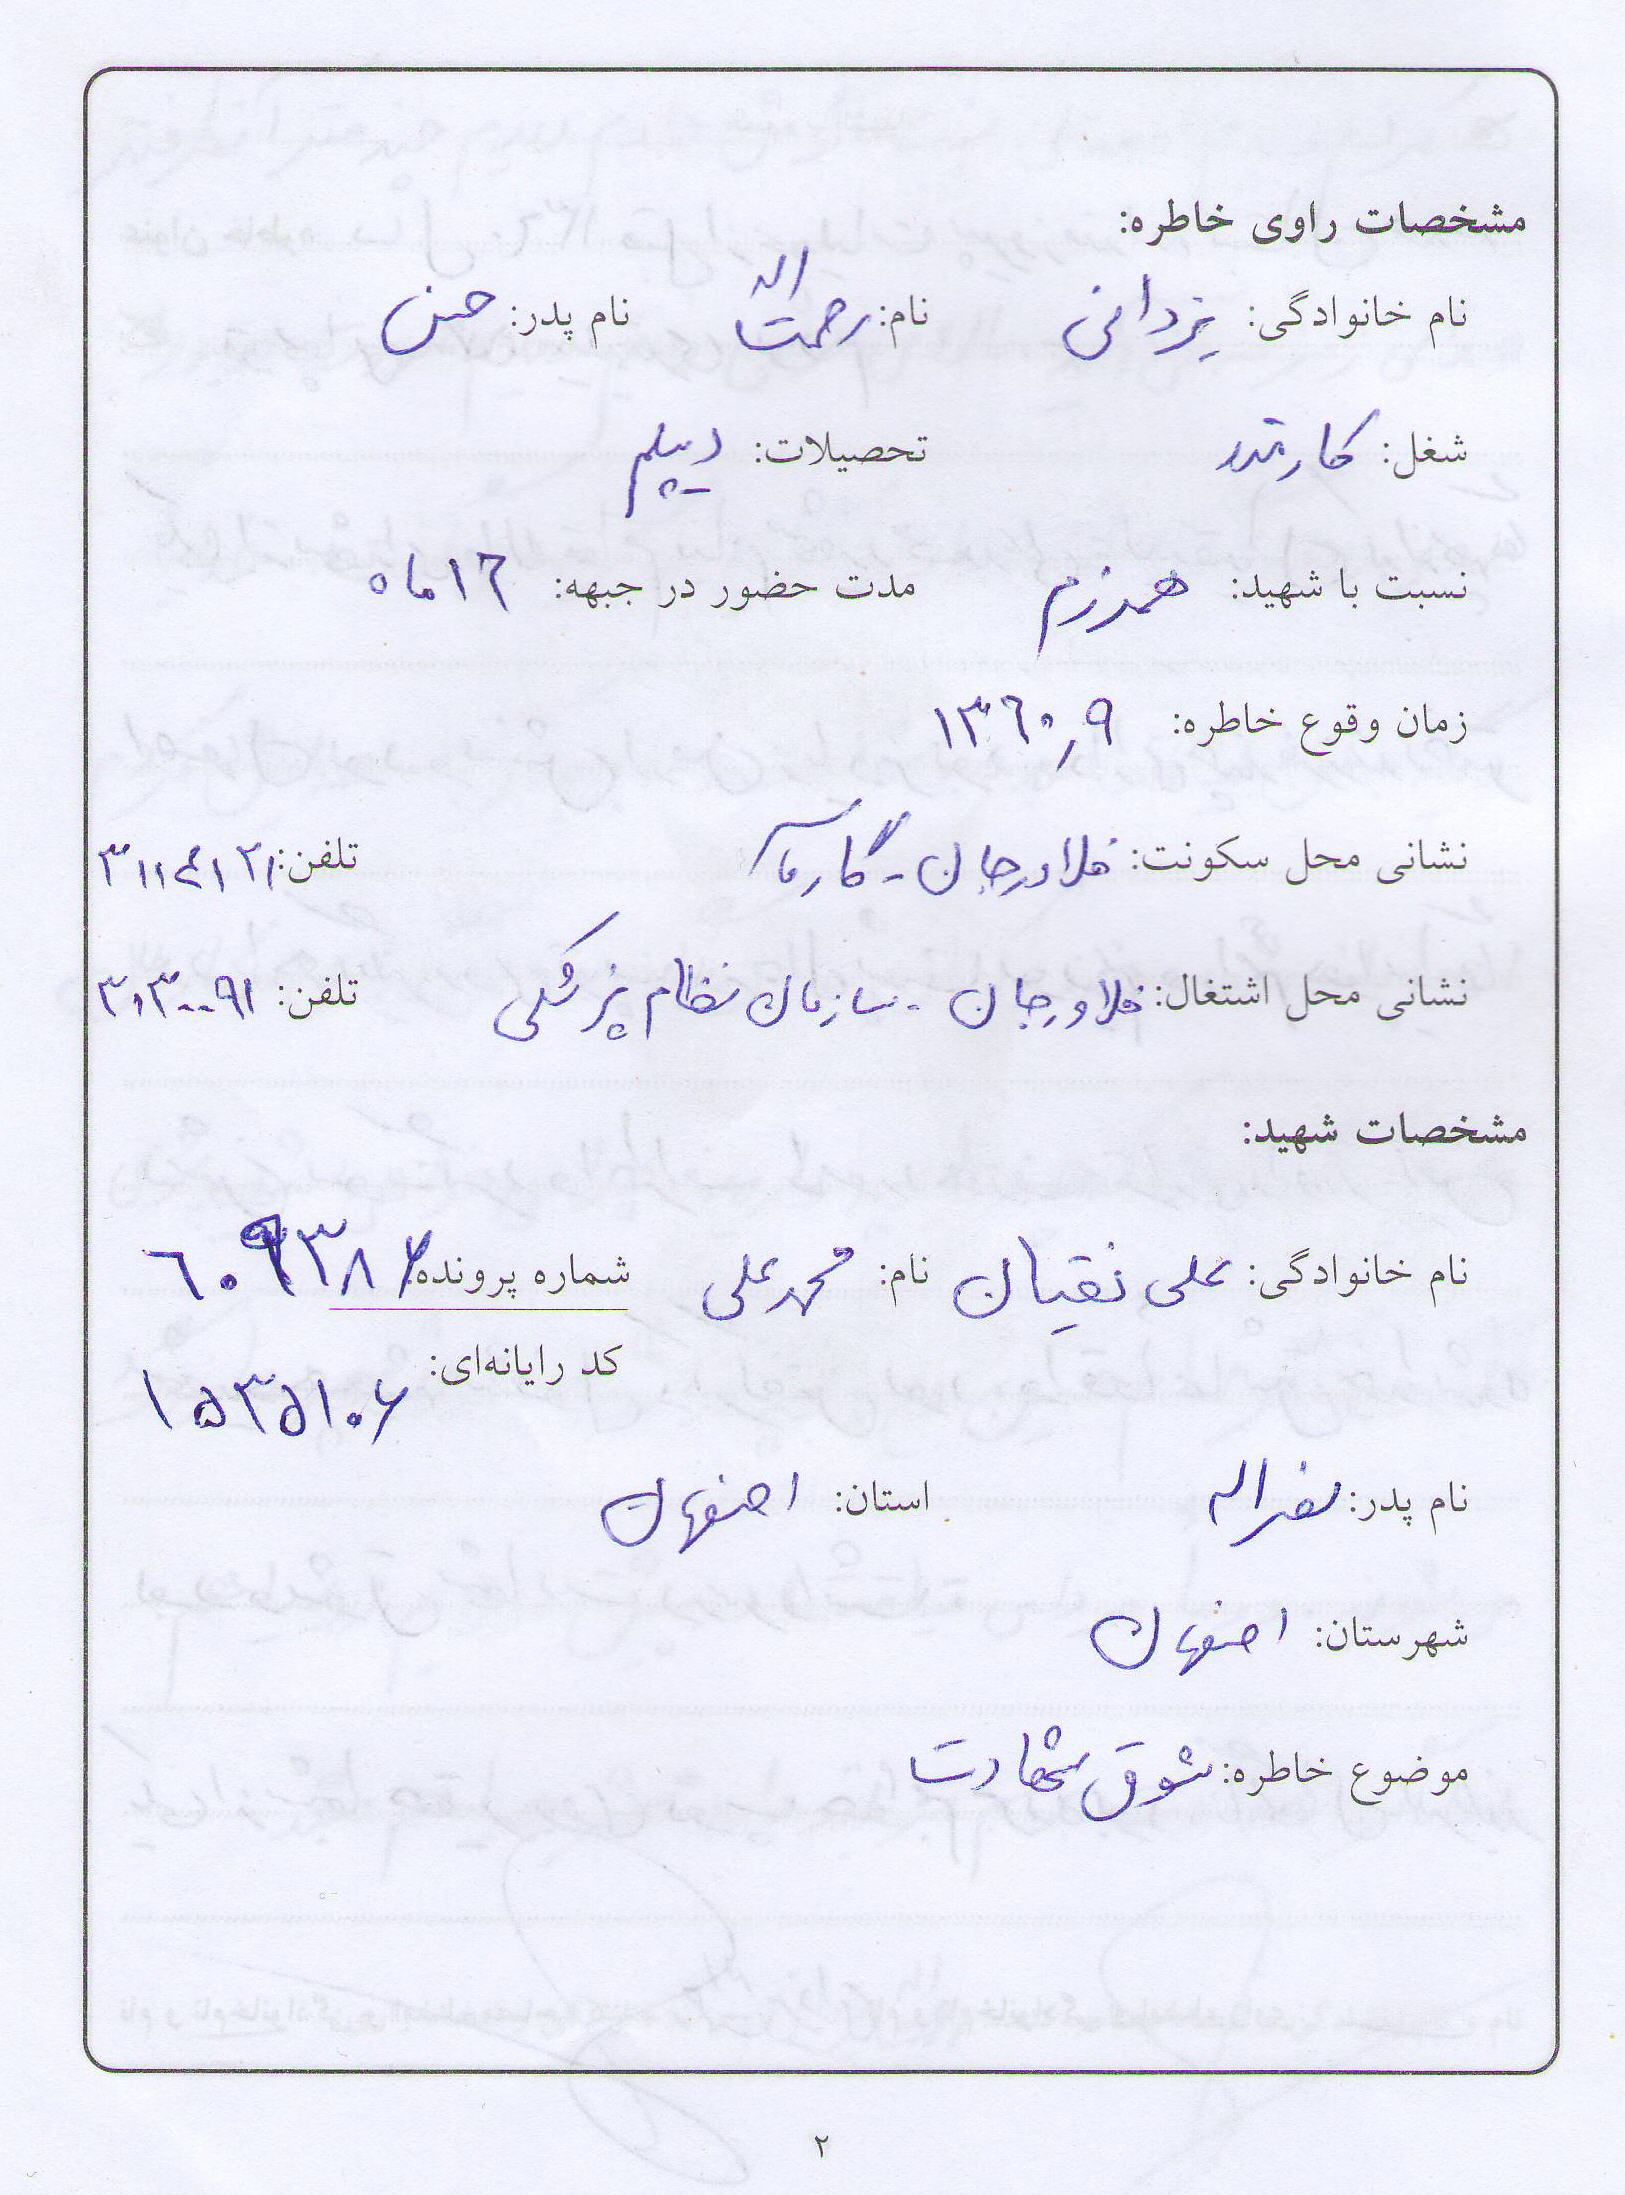 مشخصات راوی خاطره:
نام خانوادگی: یزدانی نام: رحمت اله نام پدر: حسن
شغل: کارمند تحصیلات: دیپلم
نسبت با شهید: همرزم مدت حضور در جبهه: ۱۶ ماه
زمان وقوع خاطره: ۱۳۶۰٫۹
نشانی محل سکونت: فلاورجان - گارماسه تلفن: ۳۱۱۴۱۲۱
نشانی محل اشتغال: فلاورجان - سازمان نظام پزشکی تلفن: ۳۱۳۰۰۹۱
مشخصات شهید:
نام خانوادگی: علی نقیان نام: محمدعلی شماره پرونده: ۶۰۹۳۸۲
کد رایانه‌ای: ۱۵۳۵۱۰۶
نام پدر: نصراله استان: اصفهان
شهرستان: اصفهان
موضوع خاطره: شوق شهادت
۲